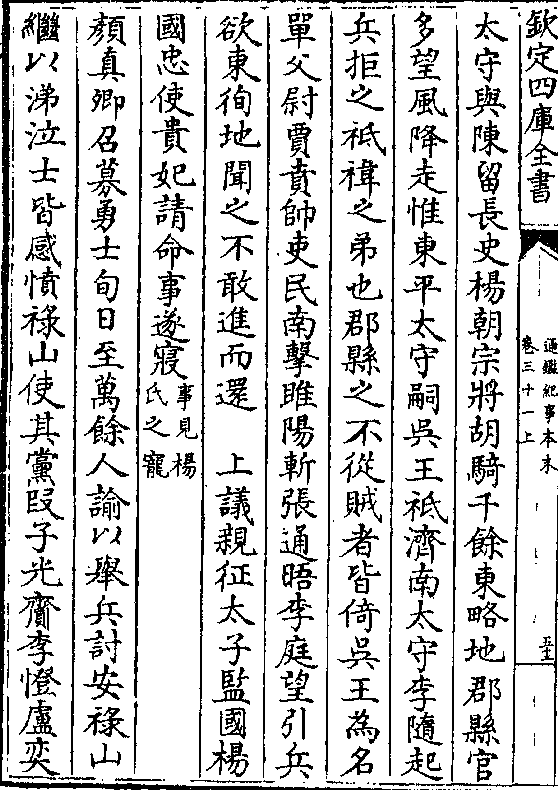 欽定四庫全書
通鑑紀事本末
卷三十一上
太守與陳留長史楊朝宗將胡騎千餘東略地郡縣官
多望風降走惟東平太守嗣吳王祗濟南太守李隨起
兵拒之祗禕之弟也郡縣之不從賊者皆倚吳王為名
單父尉賈賁帥吏民南擊睢陽斬張通晤李庭望引兵
欲東徇地聞之不敢進而還　上議親征太子監國楊
國忠使貴妃請命事遂寢事見楊氏之寵
顏真卿召募勇士旬日至萬餘人諭以舉兵討安祿山
繼以涕泣士皆感憤祿山使其黨段子光齎李憕盧奕